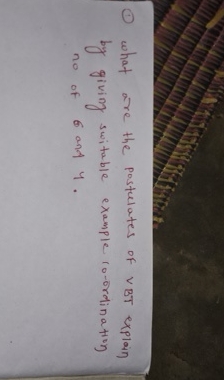 ① what are the postulates of VBT explain
by giving suitable example co-ordination
no of 6 and 4.